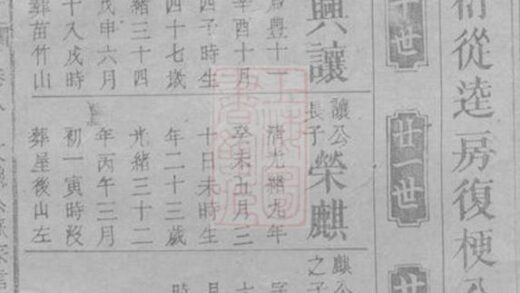 從逵房復梗公
世
廿一世
廿
興讓
豐十一
辛酉十月
四子時生
四十七歲
緒三十四
戊申六月
十八戌時
葬苗竹山
讓公
長子
榮麒
清光緒九年
癸未五月三
十日未時生
年二十三歲
光緒三十二
年丙午三月
初一寅時沒
葬屋後山左
麒公
之子